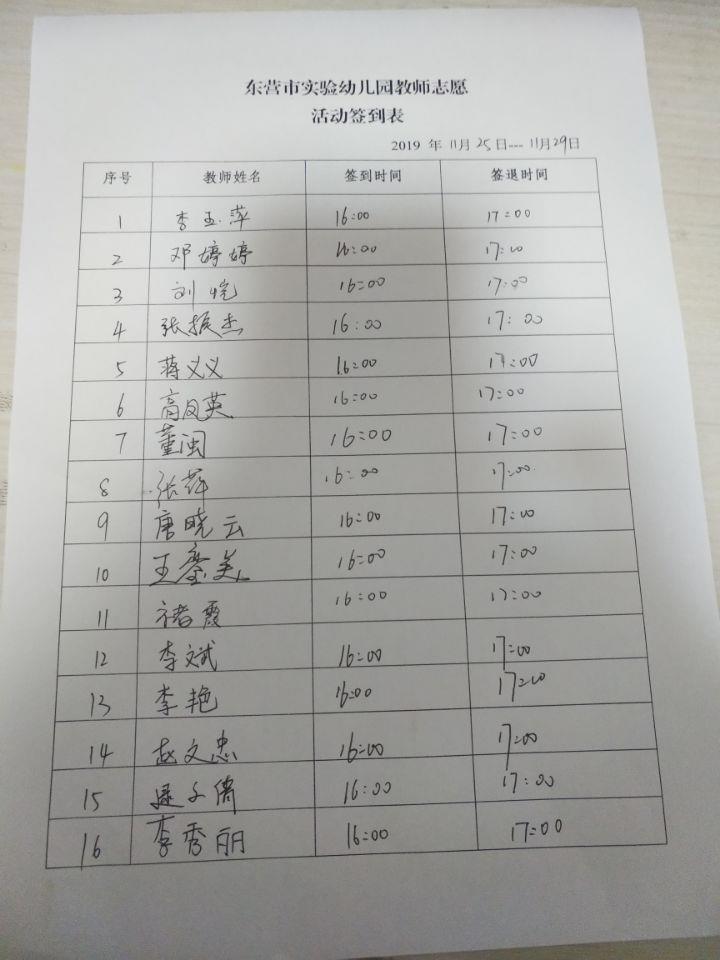 东营市实验幼儿园教师志愿
活动签到表
2019 年 11月 25日---11月29日
序号 教师姓名 签到时间 签退时间
1 李玉萍 16:00 17:00
2 邓婷婷 16:00 17:00
3 刘恺 16:00 17:00
4 张振杰 16:00 17:00
5 蒋义义 16:00 17:00
6 高凤英 16:00 17:00
7 董闽 16:00 17:00
8 张萍 16:00 17:00
9 唐晓云 16:00 17:00
10 王 美 16:00 17:00
11 褚霞 16:00 17:00
12 李斌 16:00 17:00
13 李艳 16:00 17:00
14 赵文忠 16:00 17:00
15 16:00 17:00
16 李秀丽 16:00 17:00